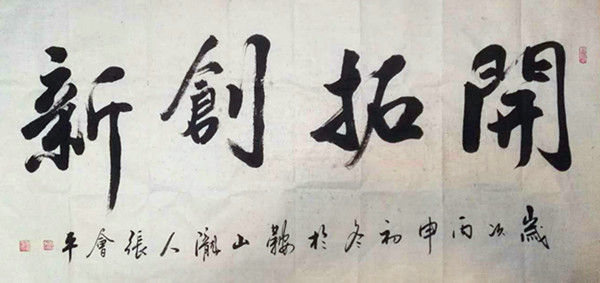 開拓創新
歲次丙申初冬於鞍山人張會平